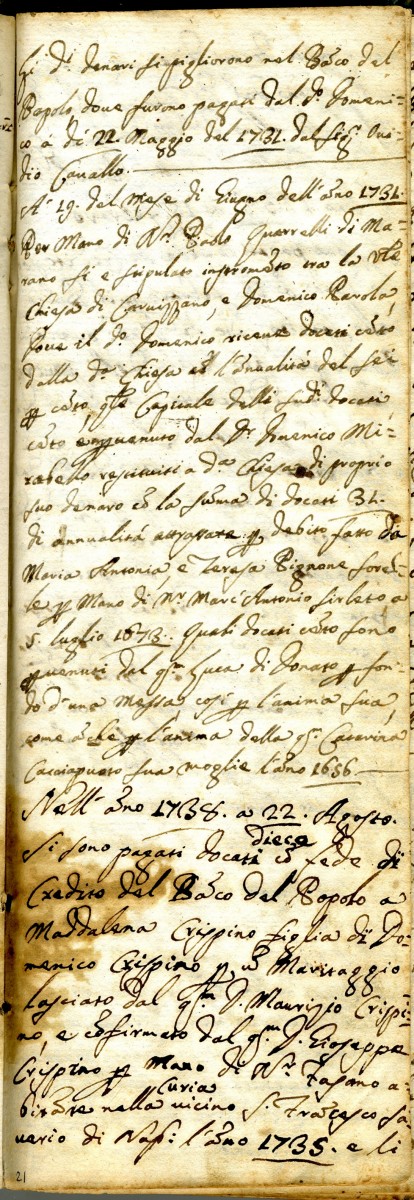 Li d.i denari si pigliorono nel Bãco del
Popolo dove furono pagati dal D. Domeni-
co a dì 22. Maggio del 1731. dal Sig.
dio Cavallo.
A' 19. del Mese di Giugno dell'ãno 1731.
Per Mano di N.r Paolo Quarrelli di Ma-
rano si è stipulato instromẽto tra la
Chiesa di Carvizzano, e Domenico Ravola,
Dove il d.o Domenico riceve docati cẽto
dalla d.a Chiesa cõ l'ãnualità del sei
p cẽto, q̃le Capitale delli sud.i docati
cẽto è pvenuto dal D.r Domenico Mi-
rabello restituiti a d.a Chiesa di proprio
suo denaro cõ la sũma di docati 31.
di annualità attrassate p debito fatto da
Maria Antonia, e Teresa Pignone sorel-
le p Mano di N.r Marc'Antonio Sirleto, a
5. luglio 1673. Quali docati cẽto sono
pvenuti dal q.m Luca di Donato p fon-
do d'una Messa così p l'anima sua,
come ãche p l'anima della q. Catarina
Cacciapuoto sua moglie l'ãno 1656.
Nell'ãno 1738. a 22. Agosto.
Si sono pagati docati diece cõ fede di
Credito del Bãco del Popolo a
Maddalena Crispino figlia di Do-
menico Crispino p ũ Maritaggio
lasciato dal q.m D. Maurizio Crispi-
no, e cõfirmato dal q.m D. Gioseppe
Crispino p Mano di N.r Fasano a-
bitãte nella Curia vicino S. Frãcesco Sa-
verio di Nap.i l'ãno 1735. e li
21